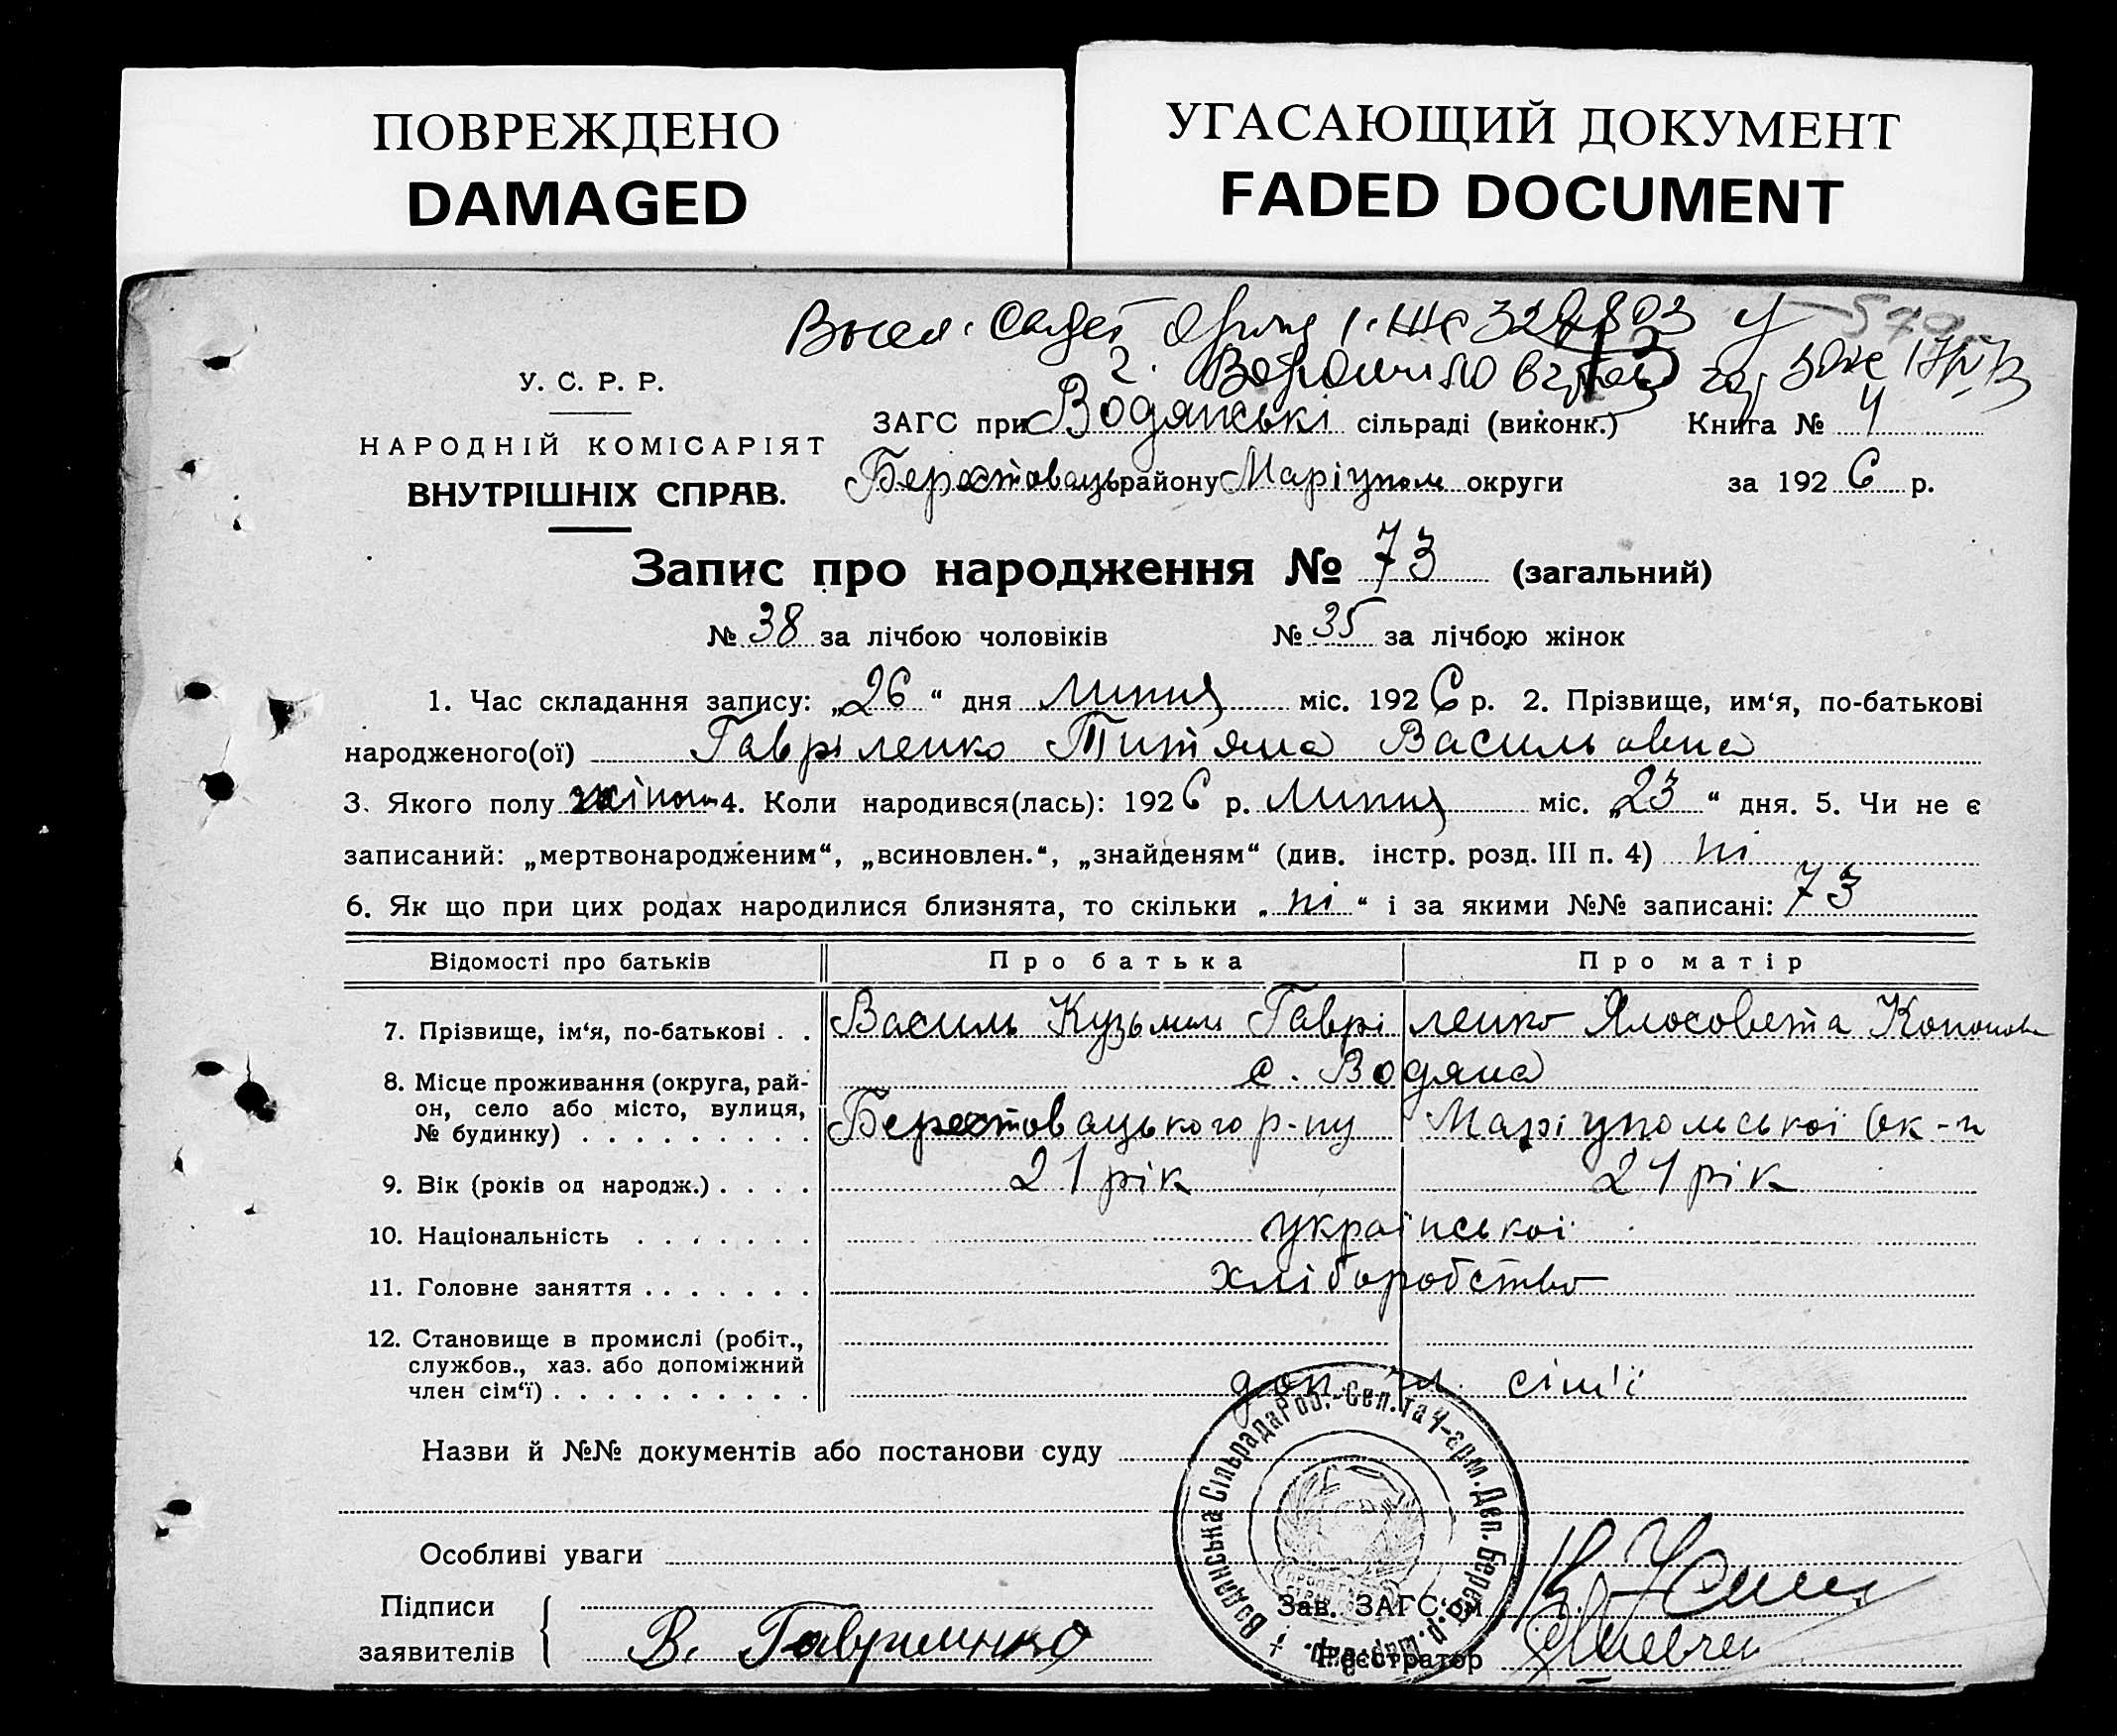 ПОВРЕЖДЕНО
DAMAGED
УГАСАЮЩИЙ ДОКУМЕНТ
FADED DOCUMENT
У. С. Р. Р.
НАРОДНІЙ КОМІСАРІЯТ
ВНУТРІШНІХ СПРАВ.
ЗАГС при Водянські сільраді (виконк.) Книга № 4
Берестовець району Маріупол округи за 1926 р.
Запис про народження № 73 (загальний)
№ 38 за лічбою чоловіків № 35 за лічбою жінок
1. Час складання запису: „26“ дня липня міс. 1926 р. 2. Прізвище, им‘я, по-батькові
народженого(ої) Гавріленко Титяна Васильовна
3. Якого полу жіноч 4. Коли народився(лась): 1926 р. липня міс. „23“ дня. 5. Чи не є
записаний: „мертвонародженим“, „всиновлен.“, „знайденям“ (див. інстр. розд. III п. 4) ні
6. Як що при цих родах народилися близнята, то скільки „ні“ і за якими №№ записані: 73
Відомості про батьків Про батька Про матір
7. Прізвище, ім‘я, по-батькові . . Василь Кузьмич Гавріленко Ялосовета Кононовн
8. Місце проживання (округа, рай- с. Водяна
он, село або місто, вулиця,
№ будинку) . . . . . . . . . Берестовацького р-ну Маріупольської ок-и
9. Вік (років од народж.) . . . . 21 рік 21 рік
10. Національність . . . . . . . української
11. Головне заняття . . . . . . . хліборобство
12. Становище в промислі (робіт.,
службов., хаз. або допоміжний
член сім‘ї) . . . . . . . . . . доп. чл. сім'ї
Назви й №№ документів або постанови суду
Особливі уваги
Підписи
заявителів В. Гавриленко
Зав. ЗАГС‘ом
Реєстратор
Водянська СільрадаРоб.-Сел. та Ч-арм. Деп. Берест. р.